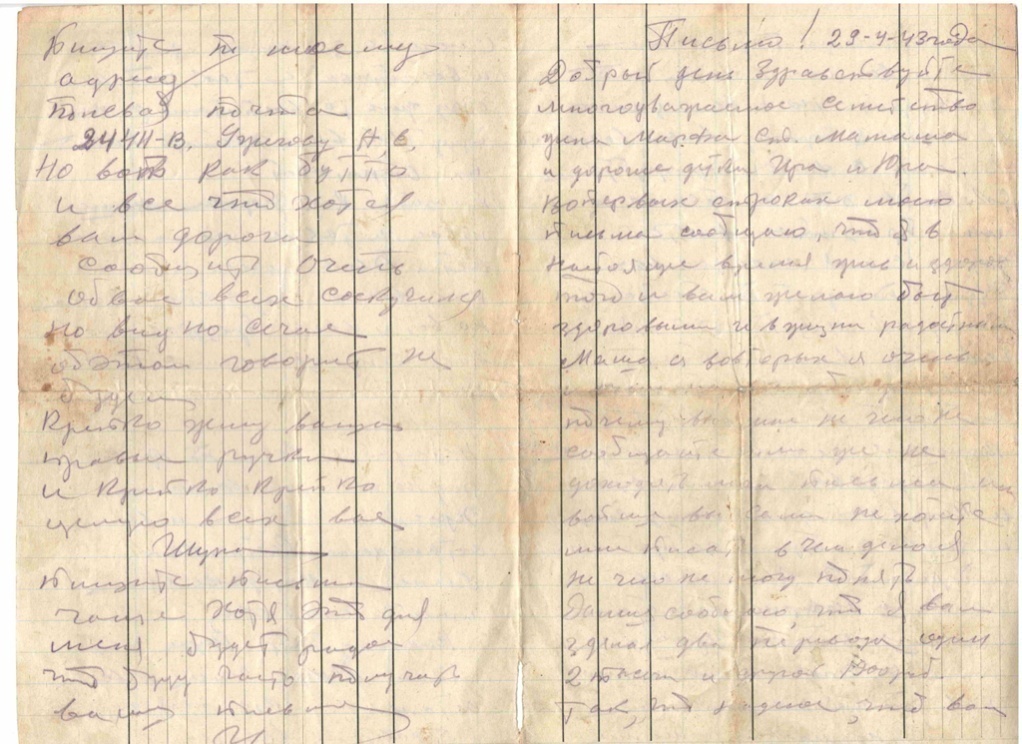 Письмо! 29-4-43 года
Добрый день Здравствуйте
многоуважаемое семейство
жена Маруся Маташа
и дорогие детки Ира и Юра.
Вопервых строках моего
письма сообщаю, что я в
настоящее время жив и здоров
того и вам желаю быт
здоровыми и в жизни радостными
Маша а вовторых я очень
почему вы мне не чего не
сообщаите или уже не
доходят мои письма или
вобще вы сами не хотите
мне писат в чем дело я
не чего не могу понять
Далше сообщаю, что я вам
зделал два первода один
2 тысячи и второй
Так, что надеюс, что вы
Пишите по моему
адресу
Полевая почта
24411-В. А. В.
Но вот как бутто
и все что хотел
вам дороги
сообщить Очень
обвас всех соскучился
но видно сечас
обэтом говорит не
будем
Крепко жму ваши
правые ручки
и Крепко Крепко
целую всех вас
Шура
Пишите письма
чаще Хотя это для
меня будет радост
что буду часто получать
ваши письма